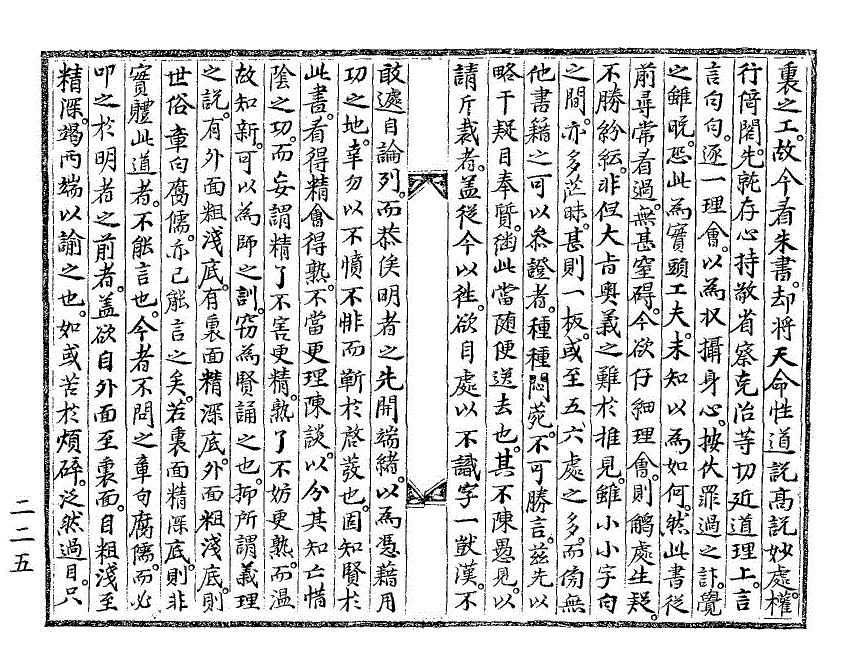 裏之工。故今看朱書。却將天命性道説高説妙處。權
行倚閣。先就存心持敬省察克治等切近道理上。言
言句句。逐一理會。以為収攝身心。按伏罪過之計。覺
之雖晩。恐此為實頭工夫。未知以為如何。然此書從
前尋常看過。無甚窒碍。今欲仔細理會。則觸處生疑。
不勝紛紜。非但大肯奥義之難於推見。雖小小字句
之間。亦多茫昧。甚則一板。或至五六處之多。而傍無
他書籍之可以叅證者。種種悶菀。不可勝言。兹先以
略干疑目奉質。從此當随便送去也。其不陳愚見。以
請斤裁者。盖從今以徃。欲自處以不識字一獃漢。不
敢遽自論列。而恭俟明者之先開端緒。以為憑藉用
功之地。幸勿以不憤不悱而靳於啓發也。固知賢於
此書。看得精會得熟。不當更理陳談。以分其知亡惜
陰之功。而妄謂精了不害更精。熟了不妨更熟。而温
故知新。可以為師之訓。窃為賢誦之也。抑所謂義理
之説。有外面粗淺底。有裏面精深底。外面粗淺底。則
世俗章句腐儒。亦已能言之矣。若裏面精深底。則非
實體此道者。不能言也。今者不問之章句腐儒。而必
叩之於明者之前者。盖欲自外面至裏面。自粗淺至
精深。竭两端以諭之也。如或苦於煩碎。泛然過目。只
二二五